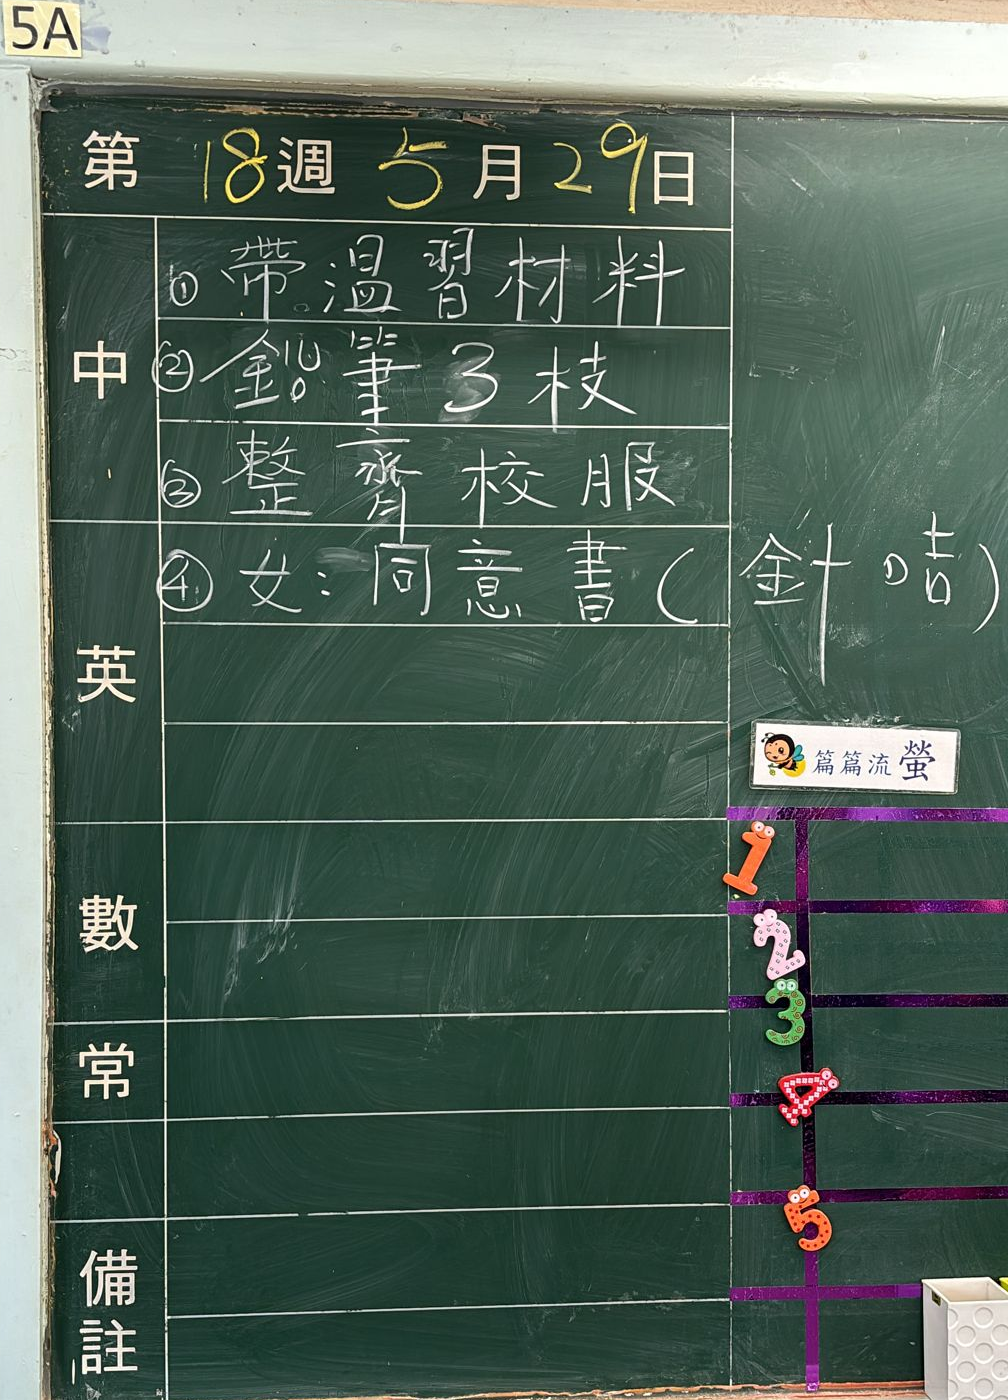 5A
第18週5月29日
中
①帶溫習材料
②鉛筆3枝
③整齊校服
英
④女:同意書(針咭)
數
常
備註
篇篇流螢
1
2
3
4
5